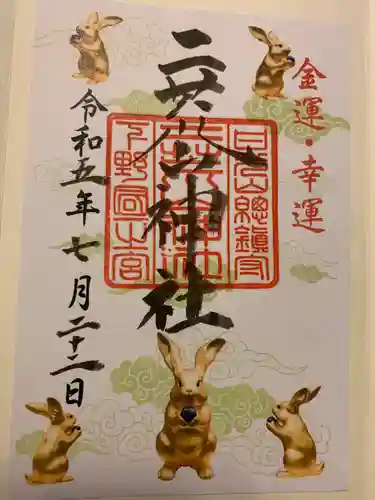 金運・幸運
日光山總鎮守
二荒山神社
下野國一之宮
令和五年七月二十二日